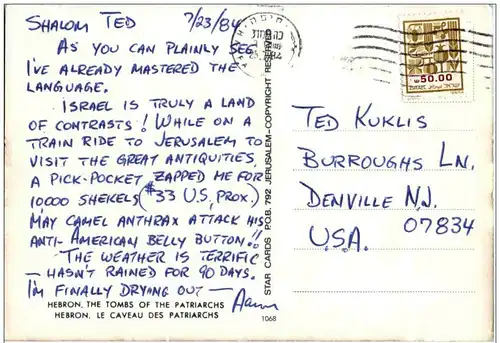 SHALOM TED 7/23/84
AS YOU CAN PLAINLY SEE
I'VE ALREADY MASTERED THE
LANGUAGE.
ISRAEL IS TRULY A LAND
OF CONTRASTS! WHILE ON A
TRAIN RIDE TO JERUSALEM TO
VISIT THE GREAT ANTIQUITIES,
A PICK-POCKET ZAPPED ME FOR
10000 SHEKELS ($33 U.S, PROX.)
MAY CAMEL ANTHRAX ATTACK HIS
ANTI-AMERICAN BELLY BUTTON!!
THE WEATHER IS TERRIFIC
- HASN'T RAINED FOR 90 DAYS.
I'M FINALLY DRYING OUT - Aaron
HEBRON, THE TOMBS OF THE PATRIARCHS
HEBRON, LE CAVEAU DES PATRIARCHS
1068
STAR CARDS P.O.B. 792 JERUSALEM-COPYRIGHT RESERVED
50.00
TED KUKLIS
BURROUGHS LN.
DENVILLE N.J.
07834
U.S.A.